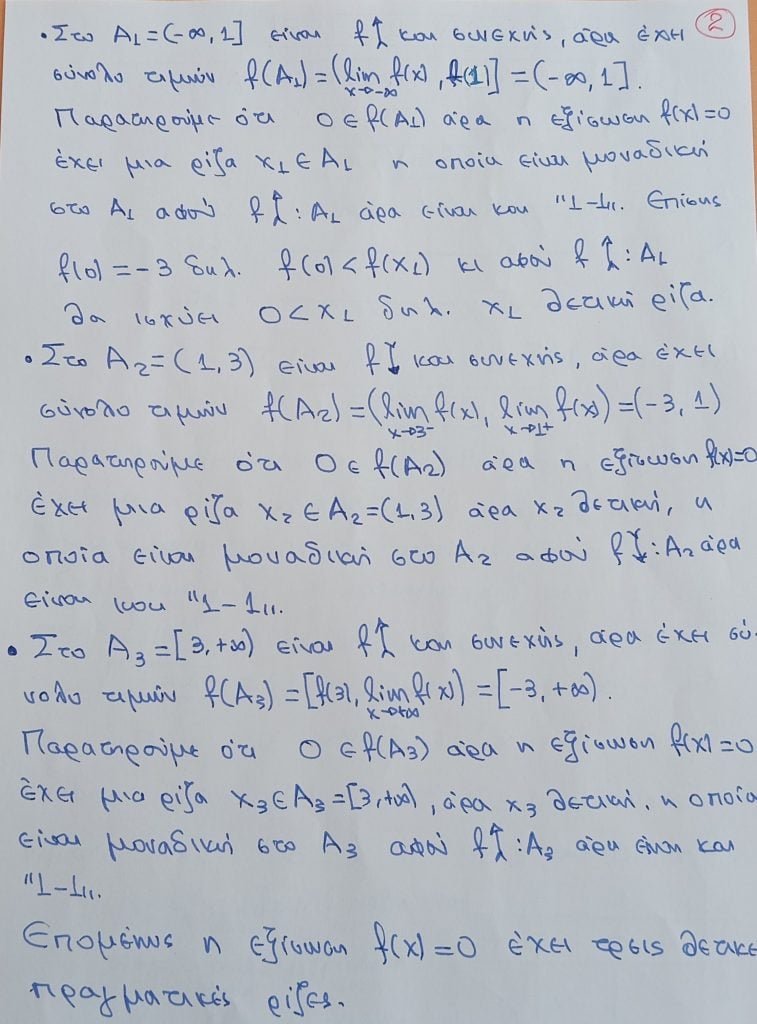 ②
• Στο A₁=(-∞,1] είναι f↑ και συνεχής, άρα έχει
σύνολο τιμών f(A₁)=(lim f(x), f(1)]=(-∞,1].
x→-∞
Παρατηρούμε ότι 0∈f(A₁) άρα η εξίσωση f(x)=0
έχει μια ρίζα x₁∈A₁ η οποία είναι μοναδική
στο A₁ αφού f↑:A₁ άρα είναι και "1-1". Επίσης
f(0)=-3 δηλ. f(0)<f(x₁) κι αφού f↑:A₁
θα ισχύει 0<x₁ δηλ. x₁ θετική ρίζα.
• Στο A₂=(1,3) είναι f↓ και συνεχής, άρα έχει
σύνολο τιμών f(A₂)=(lim f(x), lim f(x))=(-3,1)
x→3⁻ x→1⁺
Παρατηρούμε ότι 0∈f(A₂) άρα η εξίσωση f(x)=0
έχει μια ρίζα x₂∈A₂=(1,3) άρα x₂ θετική, η
οποία είναι μοναδική στο A₂ αφού f↓:A₂ άρα
είναι και "1-1".
• Στο A₃=[3,+∞) είναι f↑ και συνεχής, άρα έχει σύ-
νολο τιμών f(A₃)=[f(3), lim f(x))=[-3,+∞).
x→+∞
Παρατηρούμε ότι 0∈f(A₃) άρα η εξίσωση f(x)=0
έχει μια ρίζα x₃∈A₃=[3,+∞), άρα x₃ θετική, η οποία
είναι μοναδική στο A₃ αφού f↑:A₃ άρα είναι και
"1-1".
Επομένως η εξίσωση f(x)=0 έχει τρεις θετικέ
πραγματικές ρίζες.